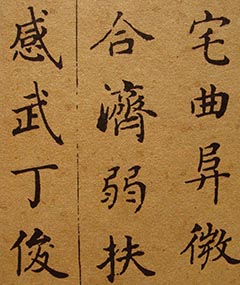 宅曲阜微
合濟弱扶
感武丁俊